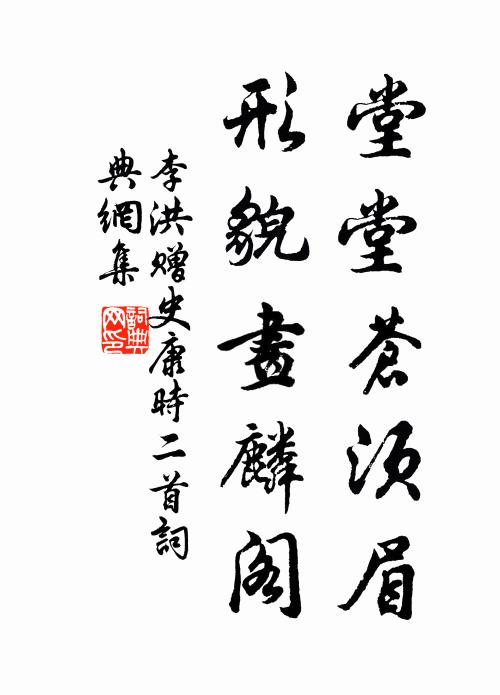 堂堂蒼須眉
形貌畫麟阁
李洪赠史康時二首詞
典網集
詞典网印